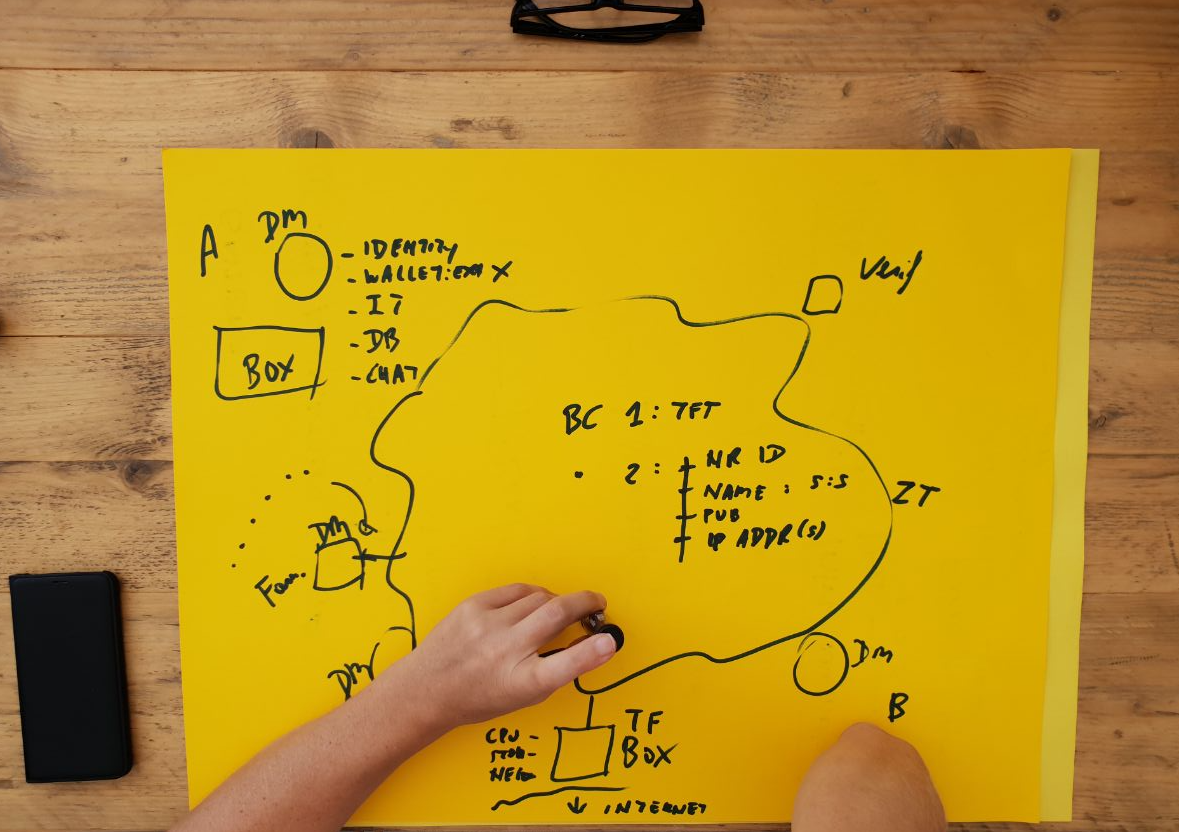 A
DM
- IDENTITY
- WALLET:
- IT
- DB
- CHAT
BOX
Verif
BC 1: TFT
. 2: NR ID
NAME : S:S
PUB
IP ADDR(S)
ZT
DM
Fam.
DM
DM
B
TF
BOX
CPU -
↓ INTERNET